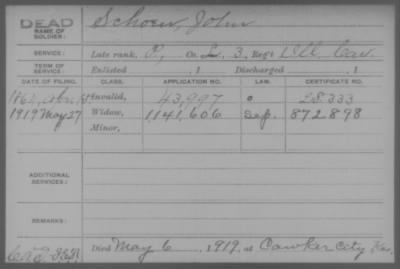 DEAD
NAME OF SOLDIER: Schoen, John
SERVICE: Late rank, P, Co. L, 3, Reg't Ill. Cav.
TERM OF SERVICE: Enlisted , 1 Discharged , 1
DATE OF FILING. CLASS. APPLICATION NO. LAW. CERTIFICATE NO.
Invalid, 43,997 28.333
1919 May 27 Widow, 1,141,606 Sep. 872,898
Minor,
ADDITIONAL SERVICES:
REMARKS:
Died May 6, 1919, at Cawker City Kan.